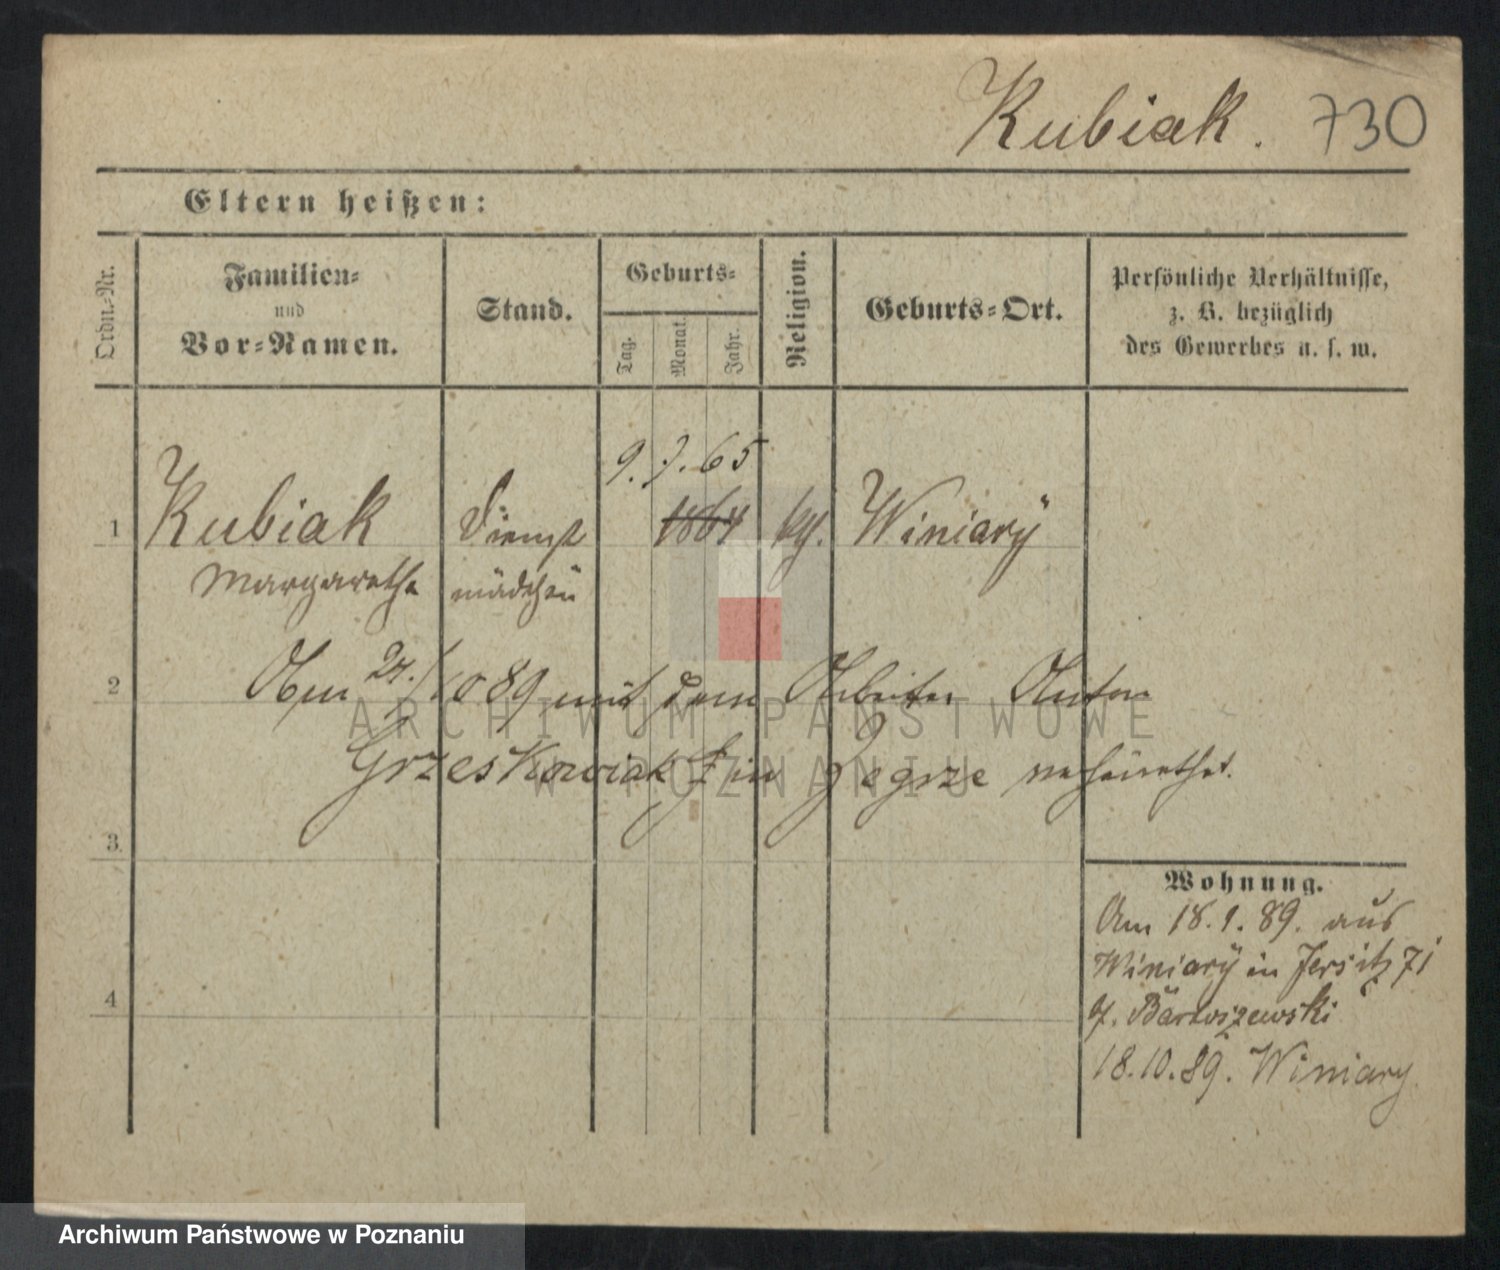 Kubiak. 730
Eltern heißen:
Ordn.-Nr.
Familien-
und
Vor-Namen.
Stand.
Geburts-
Tag.
Monat.
Jahr.
Religion.
Geburts-Ort.
Persönliche Verhältnisse,
z. B. bezüglich
des Gewerbes u. s. w.
9. 7. 65
1 Kubiak Dienst 1864 kth. Winiary
Margarethe mädchen
2 Am 24./10 89 mit dem Arbeiter Anton
Grzeskowiak in Zegrze verheirathet.
3.
4
Wohnung.
Am 18. 1. 89. aus
Winiary in Jersitz 71
18.10.89. Winiary
ARCHIWUM PAŃSTWOWE
W POZNANIU
Archiwum Państwowe w Poznaniu